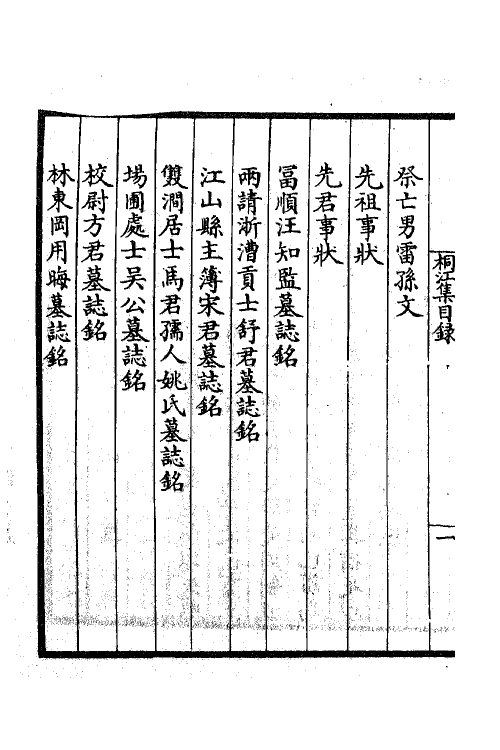 桐江集目錄
一
祭亡男雷孫文
先祖事狀
先君事狀
冨順汪知監墓誌銘
兩請浙漕貢士舒君墓誌銘
江山縣主簿宋君墓誌銘
雙澗居士馬君孺人姚氏墓誌銘
場圃處士吴公墓誌銘
校尉方君墓誌銘
林東岡用晦墓誌銘